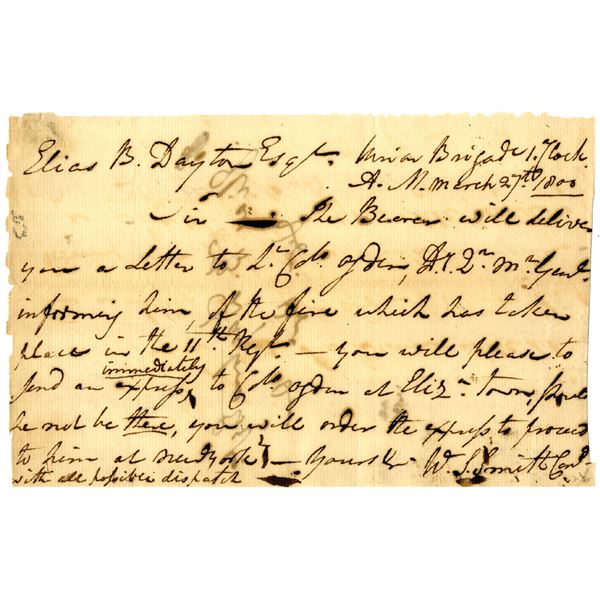 Elias B. Dayton Esqr. Union Brigade 1. Clock
A. M. march 27th. 1800
Sir — The Bearer will deliver
you a Letter to Lt. Col. ogden, D. Qr. Mr. Genl.
informing him, of the fire which has taken
place in the 11th. Regt. — you will please to
immediately
send an express, to Col. ogden at Eliz. Town, should
he not be there, you will order the express to proceed
to him at newyork — Yours &c W. S. Smith Comd.
with all possible dispatch